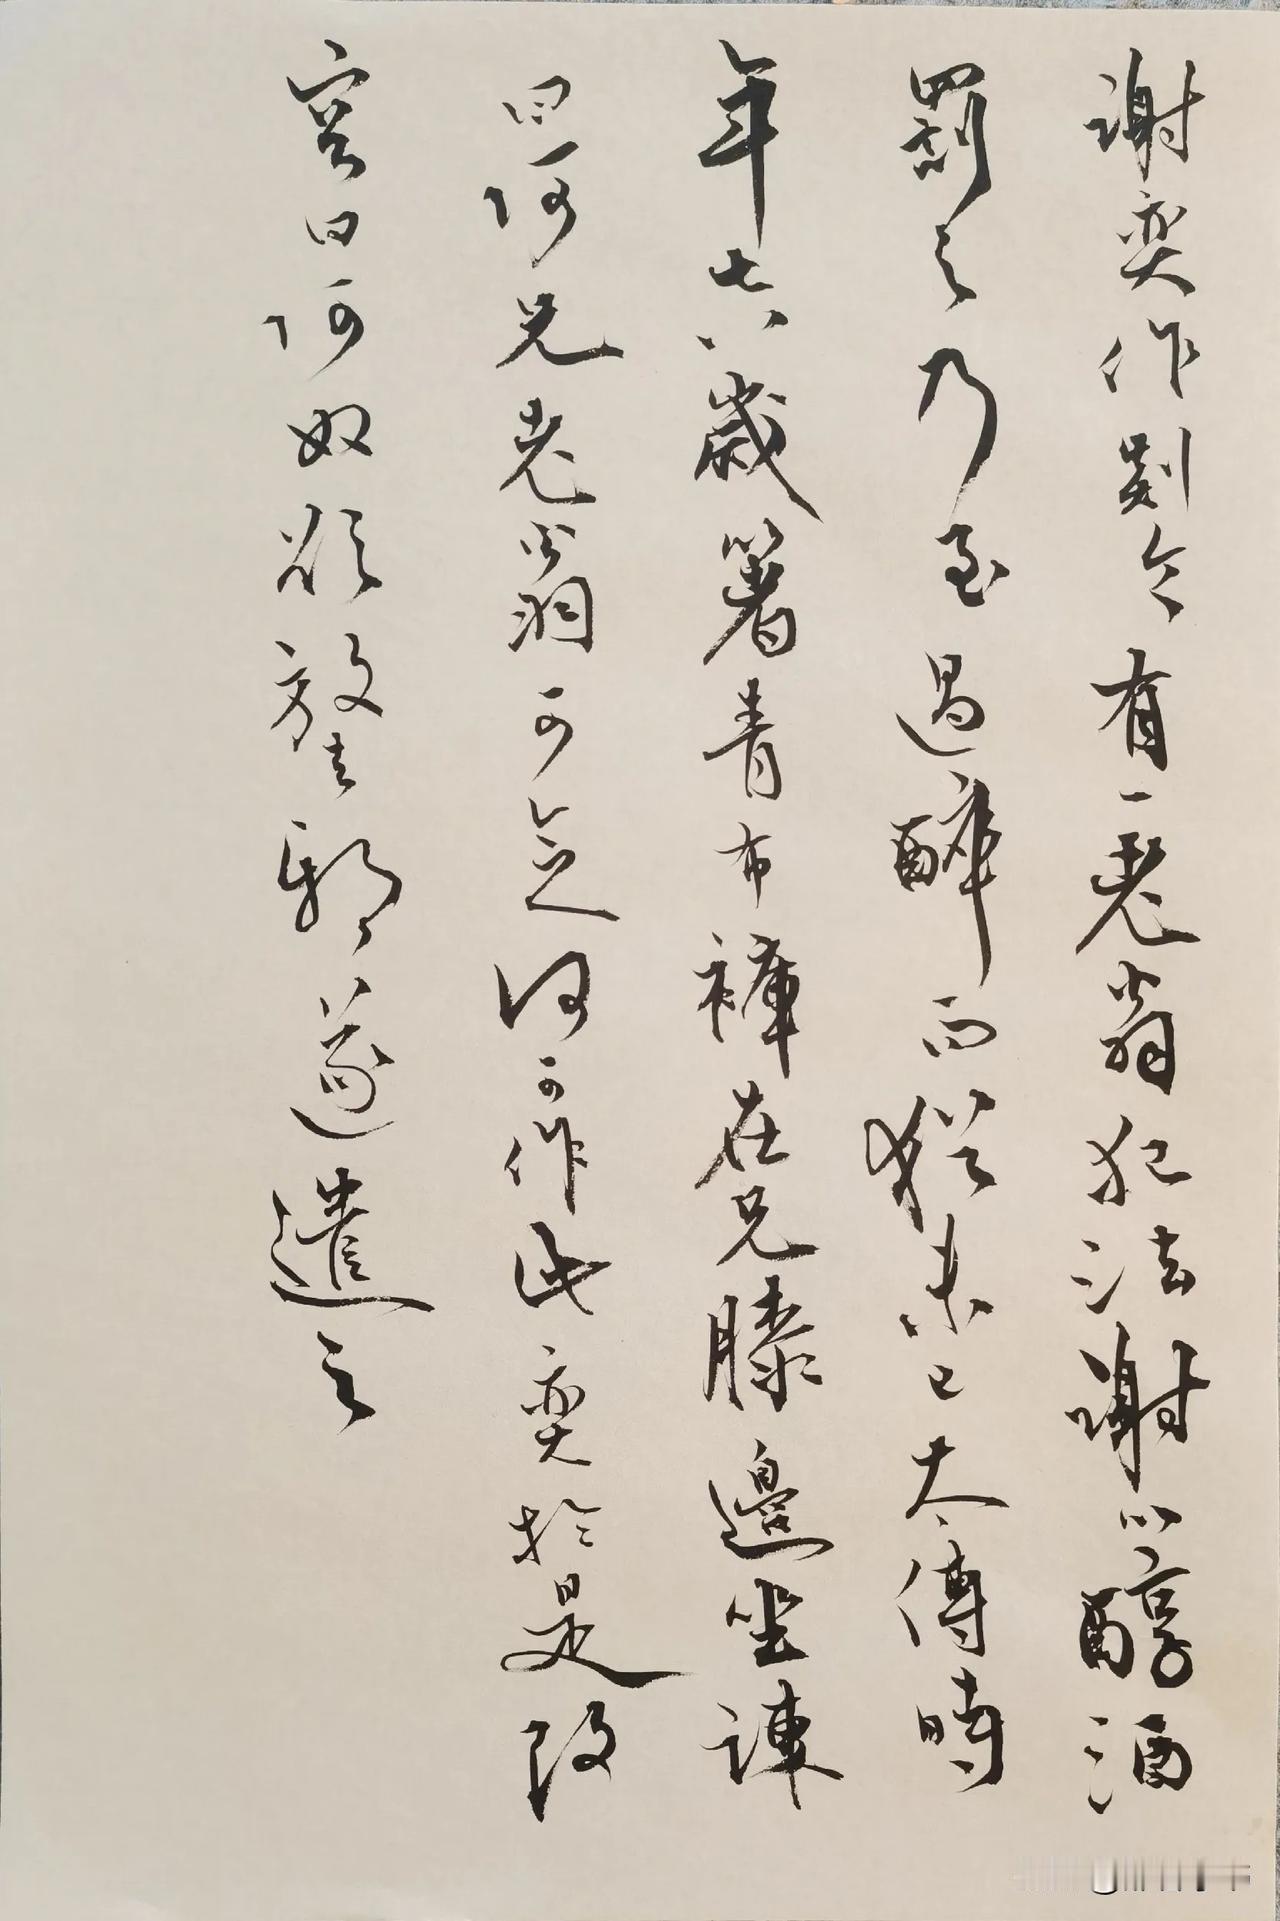 謝奕作剡令有一老翁犯法謝以醇酒
罰之乃至過醉而猶未已太傅時
年七八歲著青布褲在兄膝邊坐諫
曰阿兄老翁可念何可作此奕於是改
容曰阿奴欲放去邪遂遣之